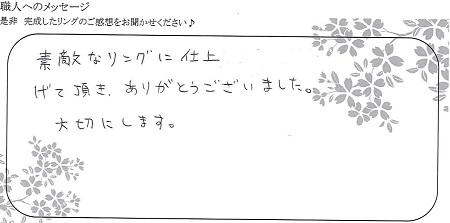 職人へのメッセージ
是非 完成したリングのご感想をお聞かせください♪
素敵なリングに仕上
げて頂き、ありがとうございました。
大切にします。